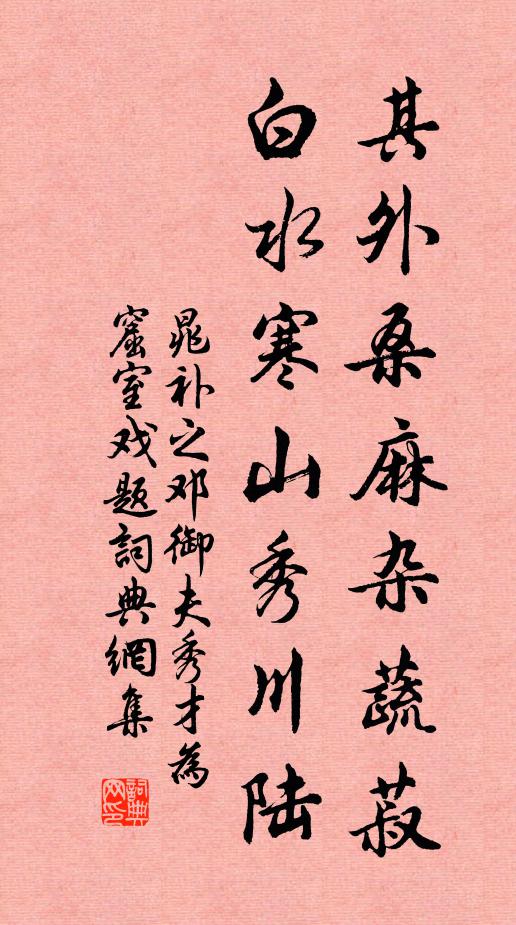 其外桑麻杂蔬菽
白水寒山秀川陆
晁补之邓御夫秀才為
窟室戏题詞典網集
詞典网印